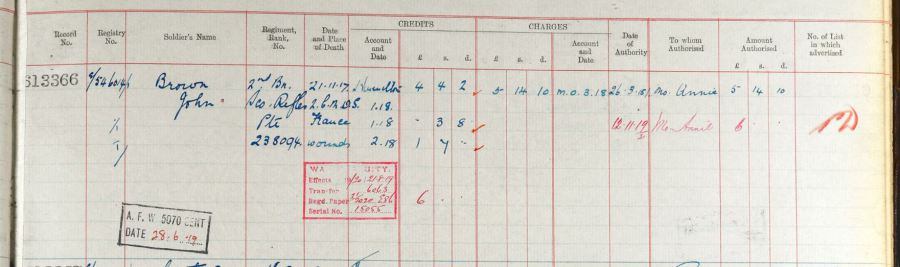 CREDITS CHARGES
Record No. Registry No. Soldier's Name Regiment, Rank, No. Date and Place of Death Account and Date £ s. d. £ s. d. Account and Date Date of Authority To whom Authorised Amount Authorised £ s. d. No. of List in which advertised
613366 Brown 2nd Bn. 21.11.17. Hamilton 4 4 2 5 14 10 M.O. 3.18 Mo. Annie 5 14 10
John. Sco. Rifles 1.18
Pte France 1.18 - 3 8 12.11.19 Mo Annie 6
238094. wounds 2.18 1 7 -
WA
Effects
Transfer 6063
Regd. Paper 6
Serial No. 15055
A. F. W 5070 SENT
DATE 28.6.19